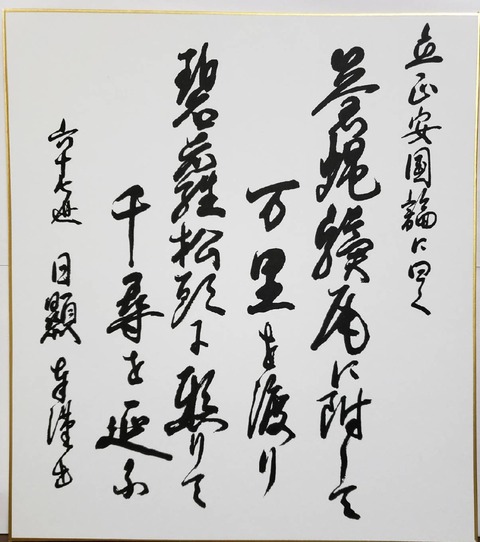 立正安国論に曰く
蒼蝿驥尾に附して
万里を渡り
碧蘿松頭に懸りて
千尋を延ふ
六十七世 日顕 奉謹書